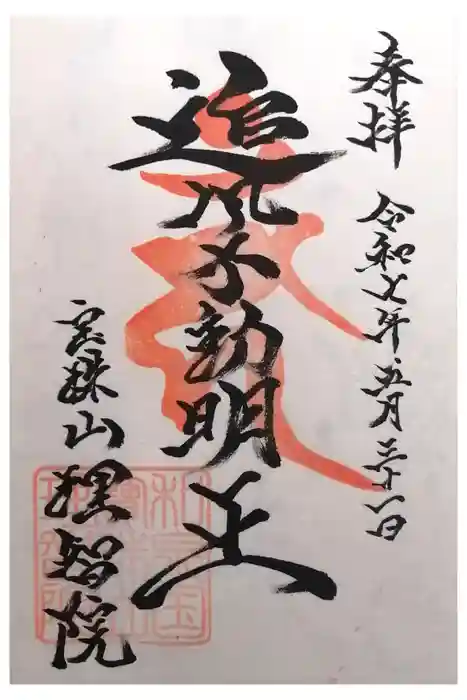 奉拝
令和七年五月三十一日
追風不動明王
宝珠山
理智院
和泉国